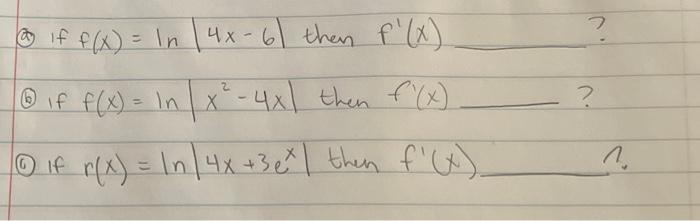 ⓐ if f(x) = ln |4x - 6| then f'(x) ______ ?
ⓑ if f(x) = ln |x² - 4x| then f'(x) ______ ?
ⓒ if r(x) = ln |4x + 3eˣ| then f'(x) ______ ?